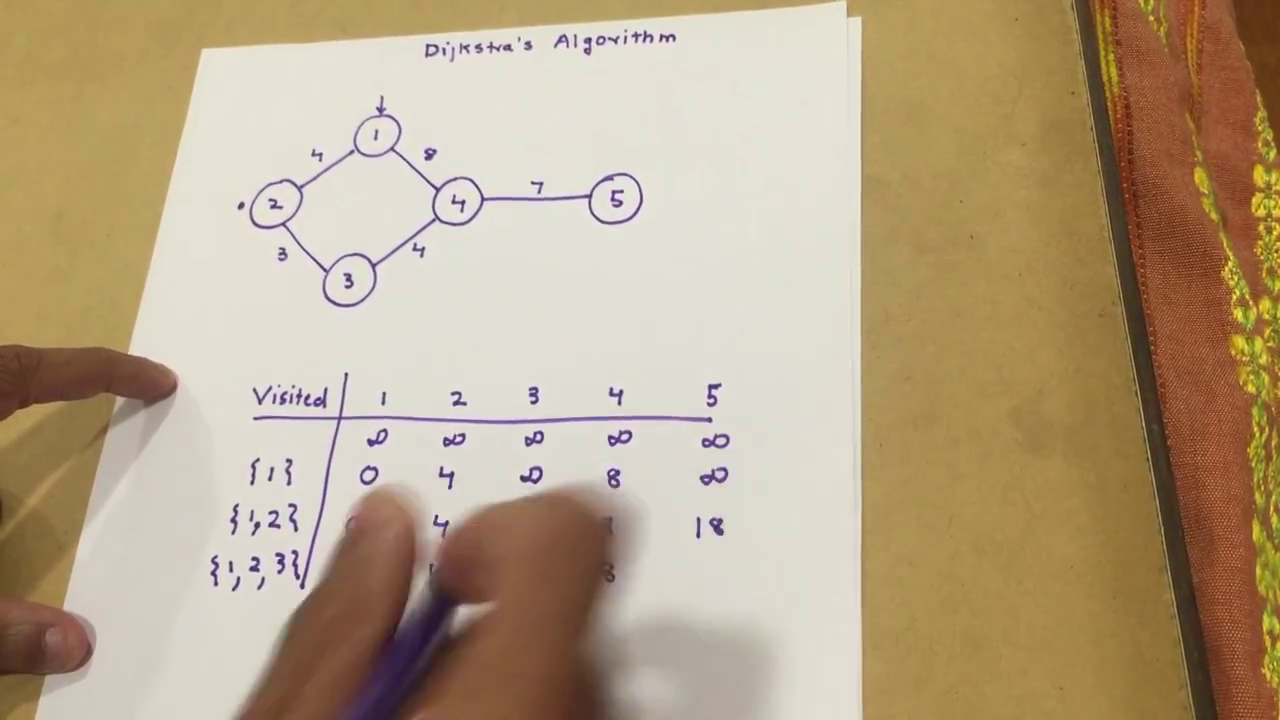 Dijkstra's Algorithm
1
4 8
2 4 7 5
3 4
3
Visited 1 2 3 4 5
∞ ∞ ∞ ∞ ∞
{1} 0 4 ∞ 8 ∞
{1,2} 4 18
{1,2,3}